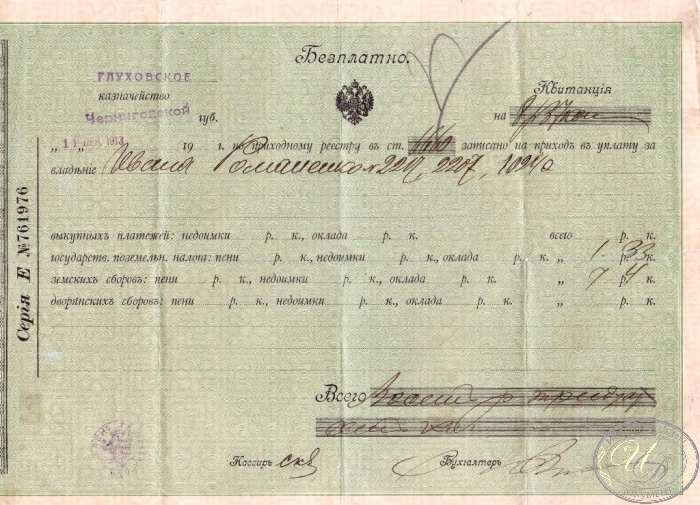 Безплатно.
ГЛУХОВСКОЕ
казначейство
Черниговской губ.
Квитанція
на 8 р 37 коп
11 ДЕК 1913 19 г. по приходному реестру въ ст. записано на приходъ въ уплату за
владѣніе Ивана Романенко № 2207, 10240
выкупныхъ платежей: недоимки р. к., оклада р. к. всего р. к.
государств. поземельн. налога: пени р. к., недоимки р. к., оклада р. к. „ 1 р. 33 к.
земскихъ сборовъ: пени р. к., недоимки р. к., оклада р. к. „ 7 р. 4 к.
дворянскихъ сборовъ: пени р. к., недоимки р. к., оклада р. к. „ р. к.
Всего Восемь р тридцать
семь коп
Кассиръ Бухгалтеръ
Серія Е № 761976